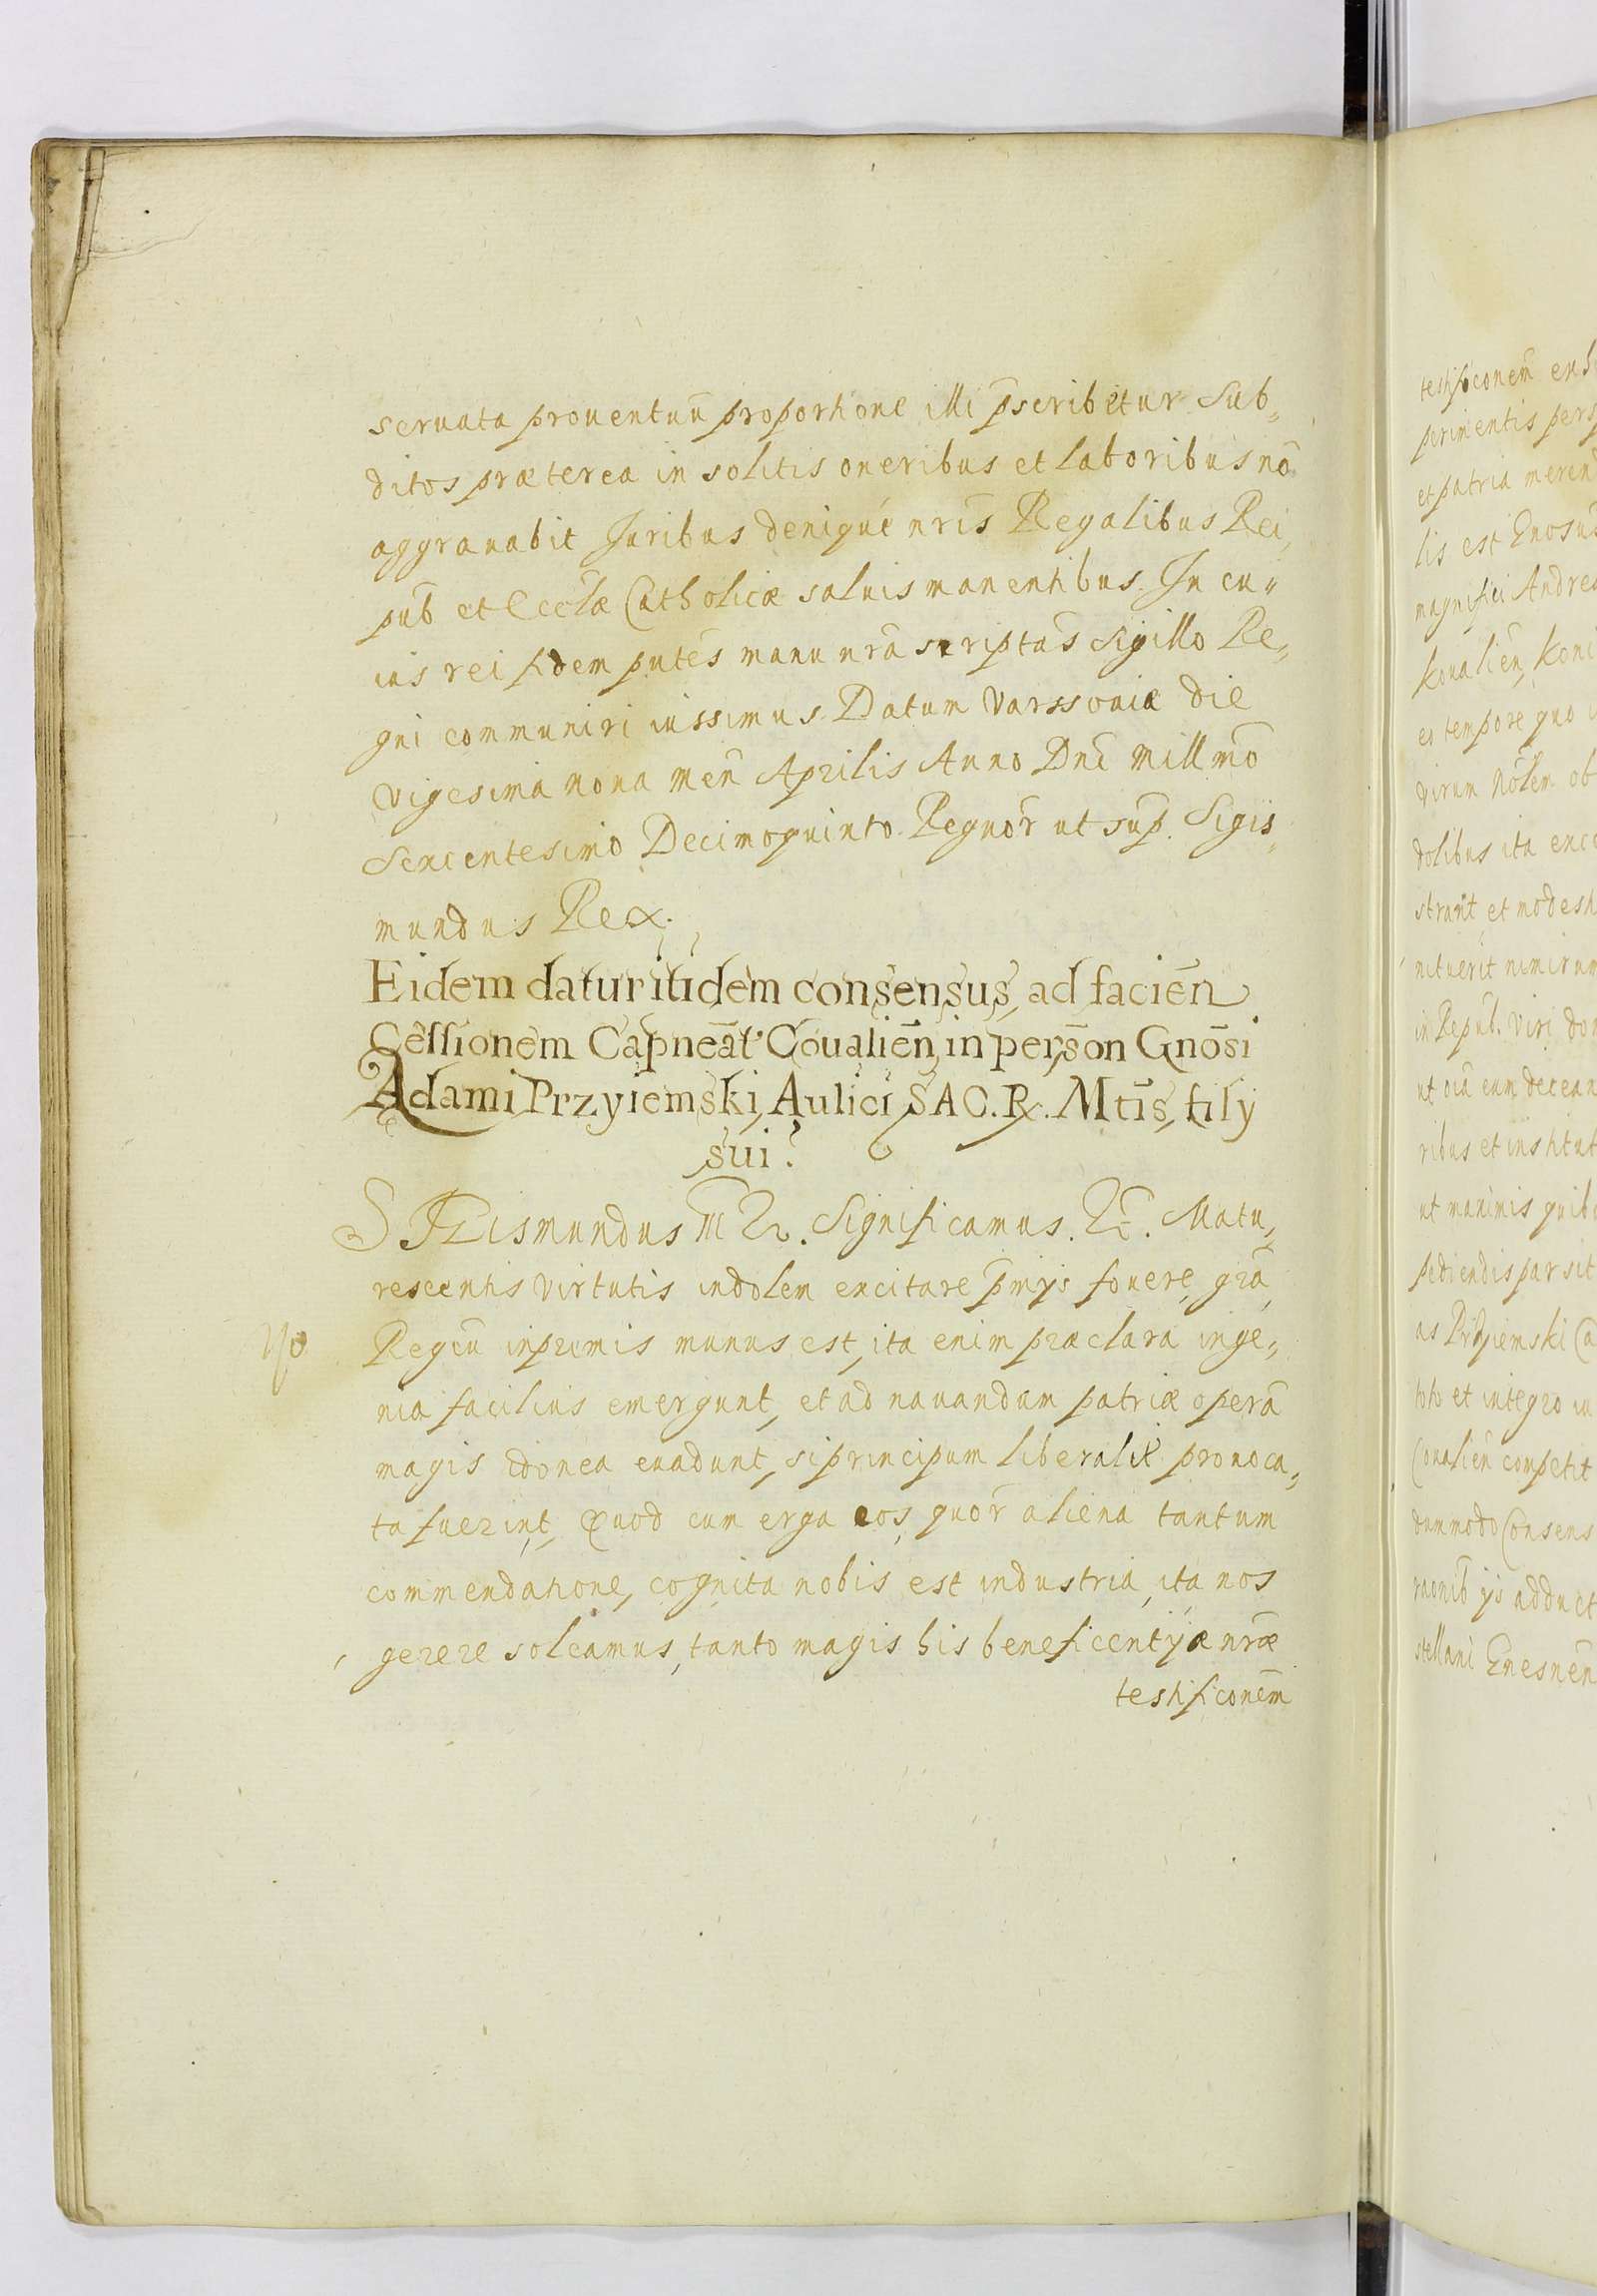 seruata prouentuū proportione illi p̄scribetur Sub„
ditos præterea in solitis oneribus et laboribus nō
aggrauabit Juribus denique nrīs Regalibus Rei,
pub̄ et Eccl̄æ Catholicæ saluis manentibus. In cu„
ius rei fidem pn̄tes manu nrā scriptas Sigillo Re„
gni communiri iussimus. Datum Varssouiæ die
Vigesima nona Men̄ Aprilis Anno Dn̄i Mill̄mo
Sexcentesimo Decimoquinto. Regnor̄ ut sup̄. Sigis„
mundus Rex.
Eidem datur itidem consensus, ad facien̄
Cessionem Capneāt Coualien̄, in person̄ Gnōsi
Adami Przyiemski, Aulici SAC. R. Mtīs, fily
sui.
SIgismundus III Significamus. Matu„
rescentis Virtutis indolem excitare p̄mijs fouere, grā,
Regiū inprimis munus est, ita enim præclara inge„
nia facilius emergunt, et ad nauandam patriæ operā
magis idonea euadunt, si principum liberalit̄ prouoca„
ta fuerint, Quod cum erga eos, quor̄ aliena tantum
commendatione, cognita nobis est industria, ita nos
gerere soleamus, tanto magis his beneficentiæ nrǣ
testificonēm
testificonēm
et patria
lis est Gnosus
magnifici Andrea
Koualien̄, Koni
eo tempore quo
virum Nōlem ob
dolibus ita
strarit et modest
nituerit nimirum
in Repub. Viri
ut oiā eum decean
ribus et institut
ut maximis quib
pediendis par sit
as Przyiemski Ca
toto et integro iu
Coualien̄ competit
dummodo Consens
raonib ijs adduct
stellani Gnesnen̄